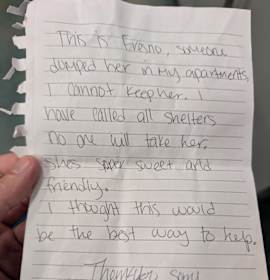 This is Fresno, someone
dumped her in my apartments,
I cannot keep her. I
have called all shelters
no one will take her.
shes super sweet and
friendly.
I thought this would
be the best way to help.
Thankyou, sorry